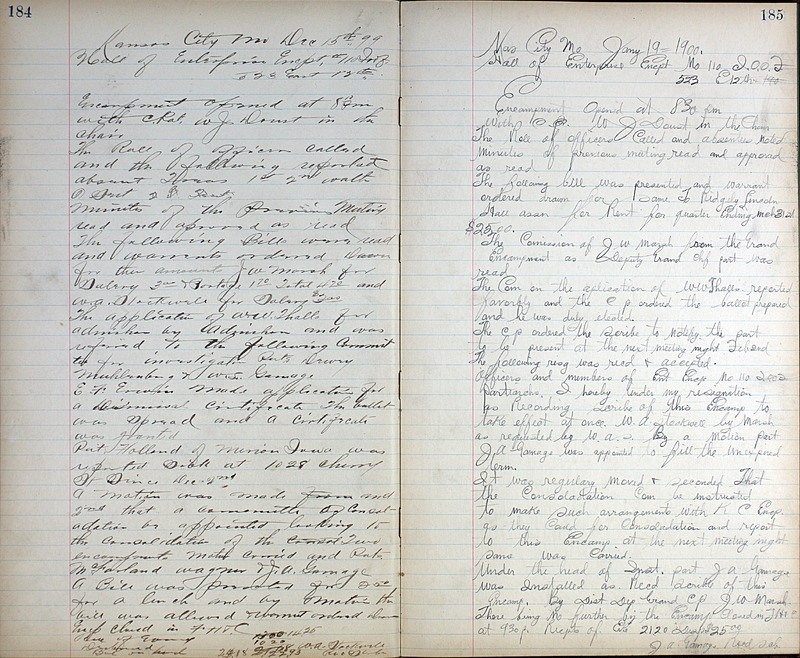 184
Kansas City Mo Dec 15th 99
Hall of Enterprise Encpt. No 110 I.O.O.F
523 East 12th
Encampment opened at 8 P.m
with C.P. W J Doust in the
chair
The Role of officers called
and the following reported
absent 1st 2nd watch
Minutes of the Previous Meeting
read and approved as read
The following Bills were read
and warrants ordered drawn
for their amounts J W Marsh for
Salery 3.00 & Postage 1.20 Total 4.20 and
W.A. Stockwell for Salery
The application of W.W. Thalls for
admision by Admision and was
refered to the following Committ
te for investigate Pats Drury
Muhlenburg & Wm Gamage
E. F. Erwin Made application for
a Dismisal Cirtificate The ballet
was Spread and a Cirtificate
was Granted
Pat. Holland of Marion Iowa was
reported Sick at 1028 Cherry
St Since Dec 2nd
A Motion was made and
2nd that a committee on Consol-
adation be appointed looking to
the Consoladation of the
encampments Motion Carried and Pats
McFarland Wagner & J.A. Gamage
A Bill was presented for
for a lunch and by Motion the
bill was allowed & Warrent ordered drawn
Encp Closed in F. H & C
W.A. Stockwell
185
Kas City Mo Jany 19 - 1900.
Hall of Enterprise Encpt No 110 I.O.O.F
523 E 12th
Encampment Opened at 8 30 p.m
With C.P. W J Doust in the Chair
The Role of officers Called and absentees noted
Minutes of previous meeting read and approved
as read.
The following bill was presented and warrant
ordered drawn for Same To Ridgely Lincoln
Hall assn for Rent for quarter Ending mch 31st
$25.00.
The Comission of J W Marsh from the Grand
Encampment as Deputy Grand of part was
read
The Com on the aplication of W.W. Thalls reported
favorbly and the C P ordered the ballot prepared
and he was duly elected.
The C P ordered the Scribe to notify the part
to be present at the next meeting night Feb 2nd
The following resig was read & accepted.
Officers and members of Ent Encp No 110
Patriarchs, I hereby tender my resignation
as Recording Scribe of this Encamp to
take effect at once. W. A. Stockwell by Marsh
as requested by W.A.S. By a Motion part
J. A. Gamage was appointed to fill the Unexpired
Term.
It was regulary Moved & Seconded That
the Consoladation Com be instructed
to make such arrangements with K C Encp.
as they Could for Consoladation and report
to this Encamp at the next meeting night
Same was Carried.
Under the head of Inst. part J A Gamage
was Installed as Recd Scribe of this
Encamp. By Dist Dep Grand C P J W Marsh
There being No further biz the Encamp Closed in F H & C
at 9 30 p. Recpts of Eve 21 20 Disb $35 00
J. A. Gamage Recd Scb.